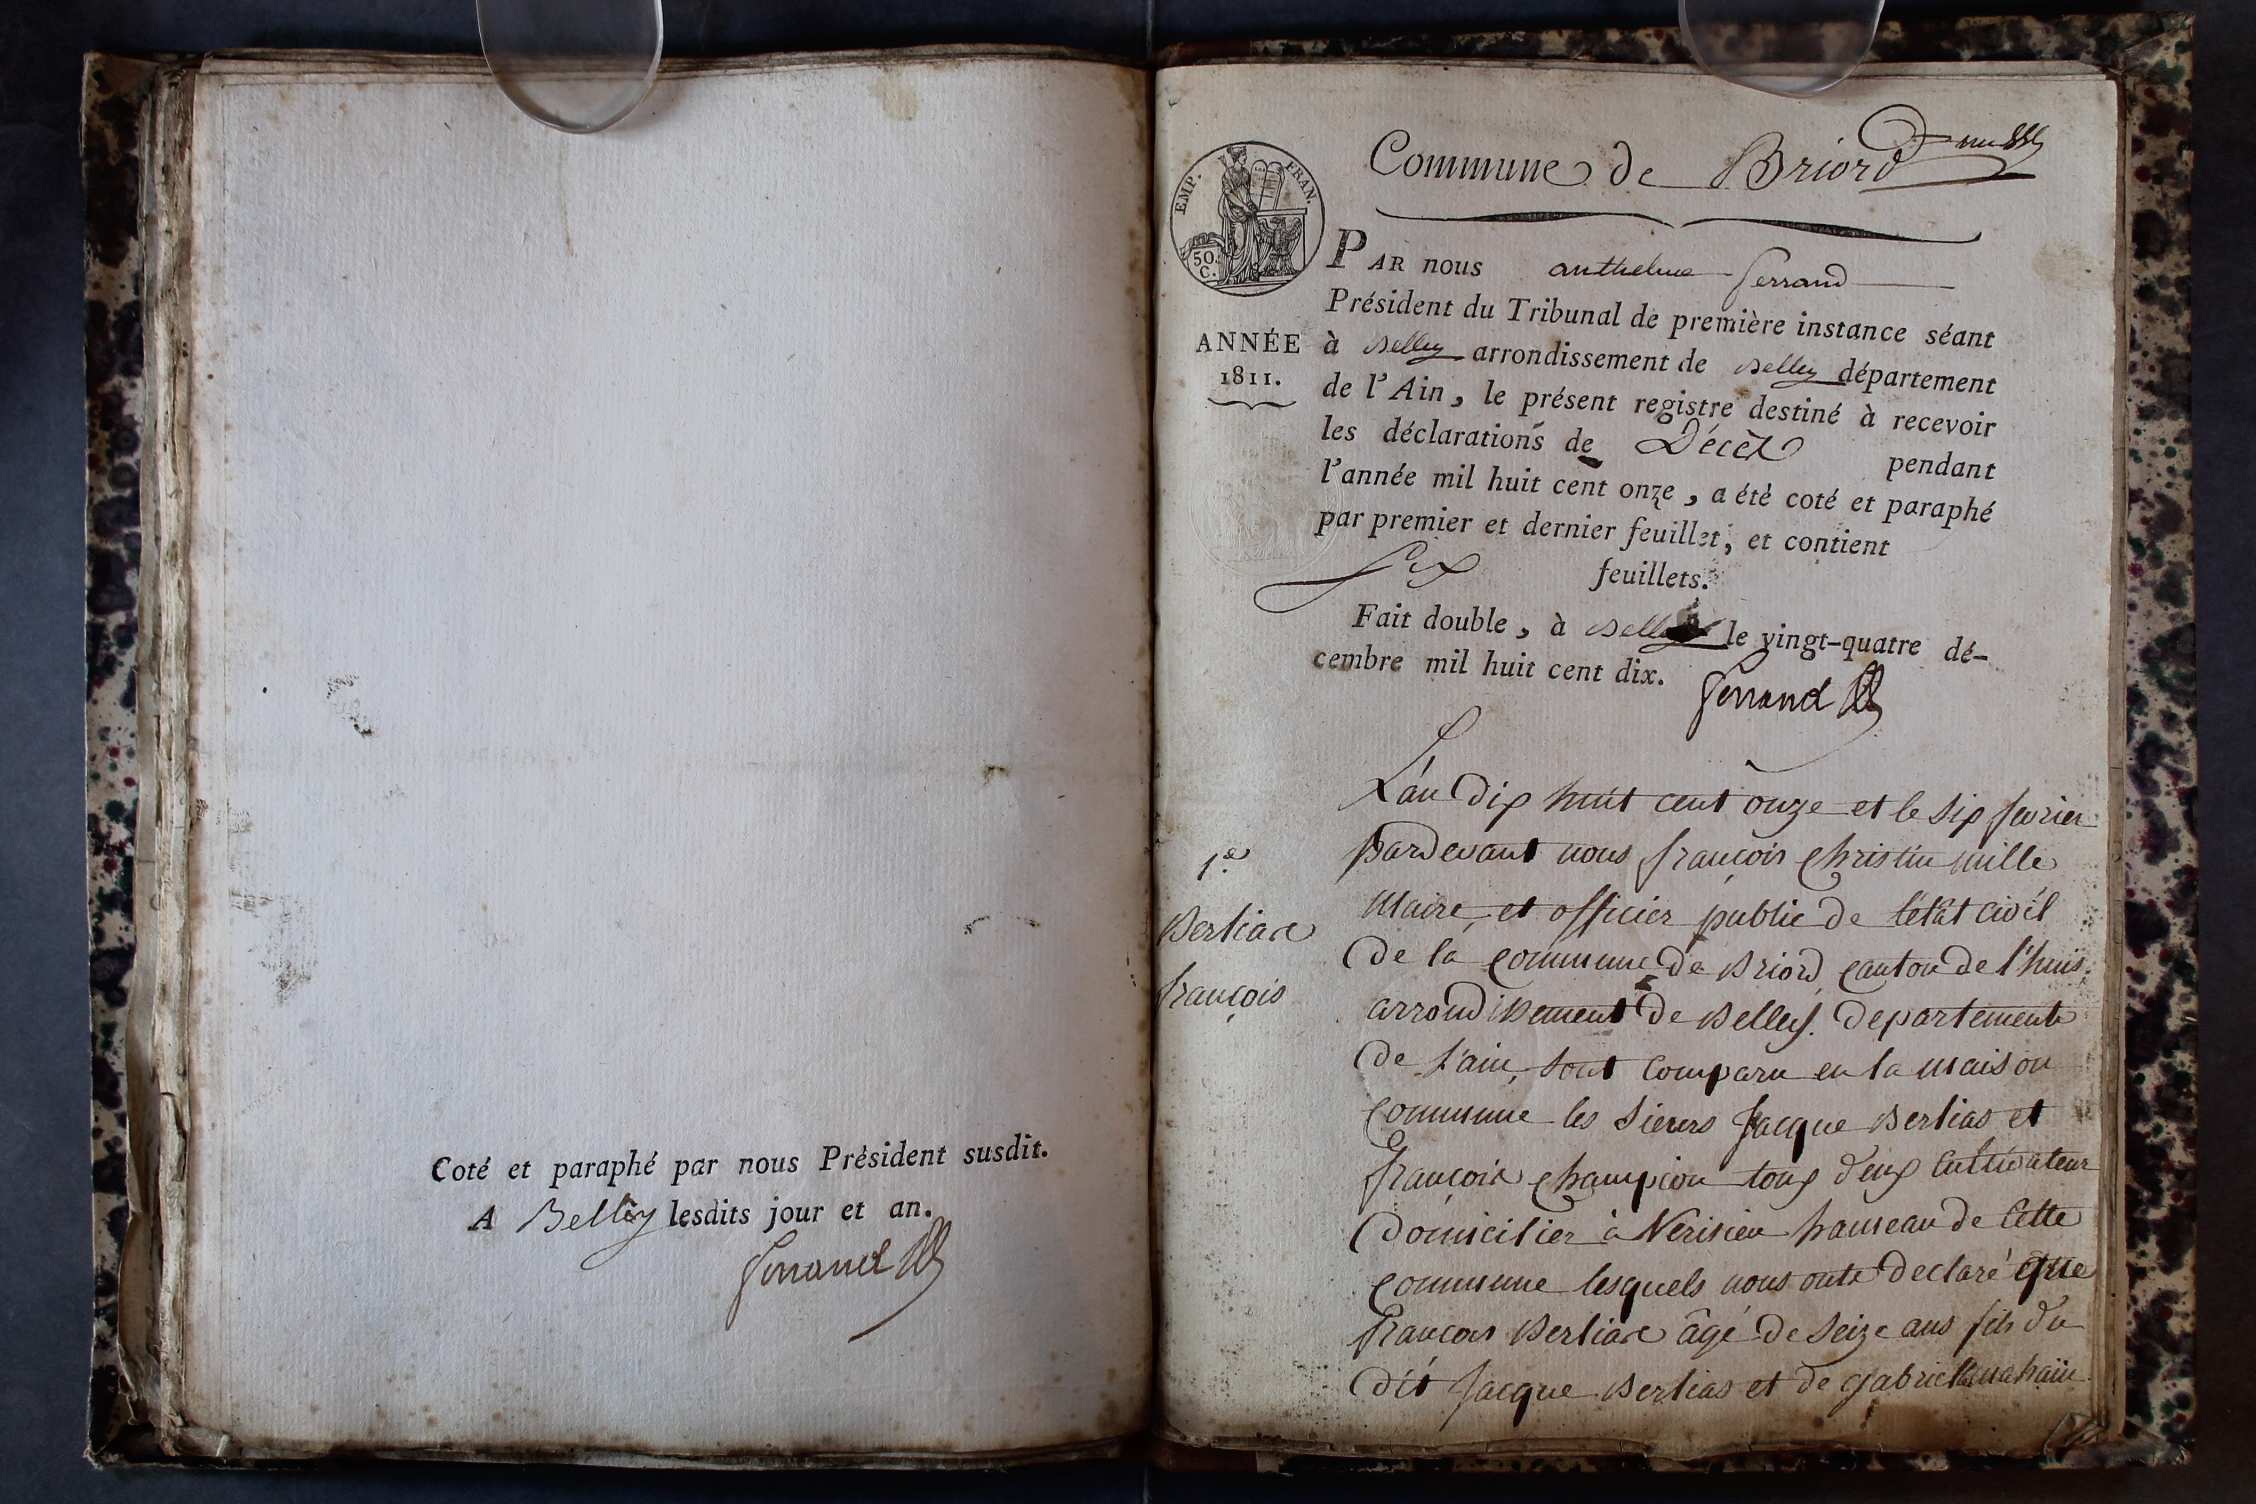 Coté et paraphé par nous Président susdit.
A Belley lesdits jour et an.
Ferrand
Commune de Briord
EMP. FRAN.
50.
C.
ANNÉE
1811.
PAR nous anthelme ferrand
Président du Tribunal de première instance séant
à Belley arrondissement de Belley département
de l'Ain, le présent registre destiné à recevoir
les déclarations de Décès pendant
l'année mil huit cent onze, a été coté et paraphé
par premier et dernier feuillet, et contient
six feuillets.
Fait double, à Belley le vingt-quatre dé-
cembre mil huit cent dix.
Ferrand
1.er
Berlias
françois
L'an dix huit cent onze et le six fevrier
pardevant nous françois Christin mille
Maire, et officier public de l'état civil
de la commune de Briord canton de l'huis.
arrondissement de Belley. departement
de l'ain, sont comparu en la maison
commune les sieurs Jacque Berlias et
françois champion tous deux cultivateur
domicilier à Vérisieu hameau de cette
commune lesquels nous onts declaré que
françois Berlias âgé de seize ans fils du
dit Jacque Berlias et de gabrielle